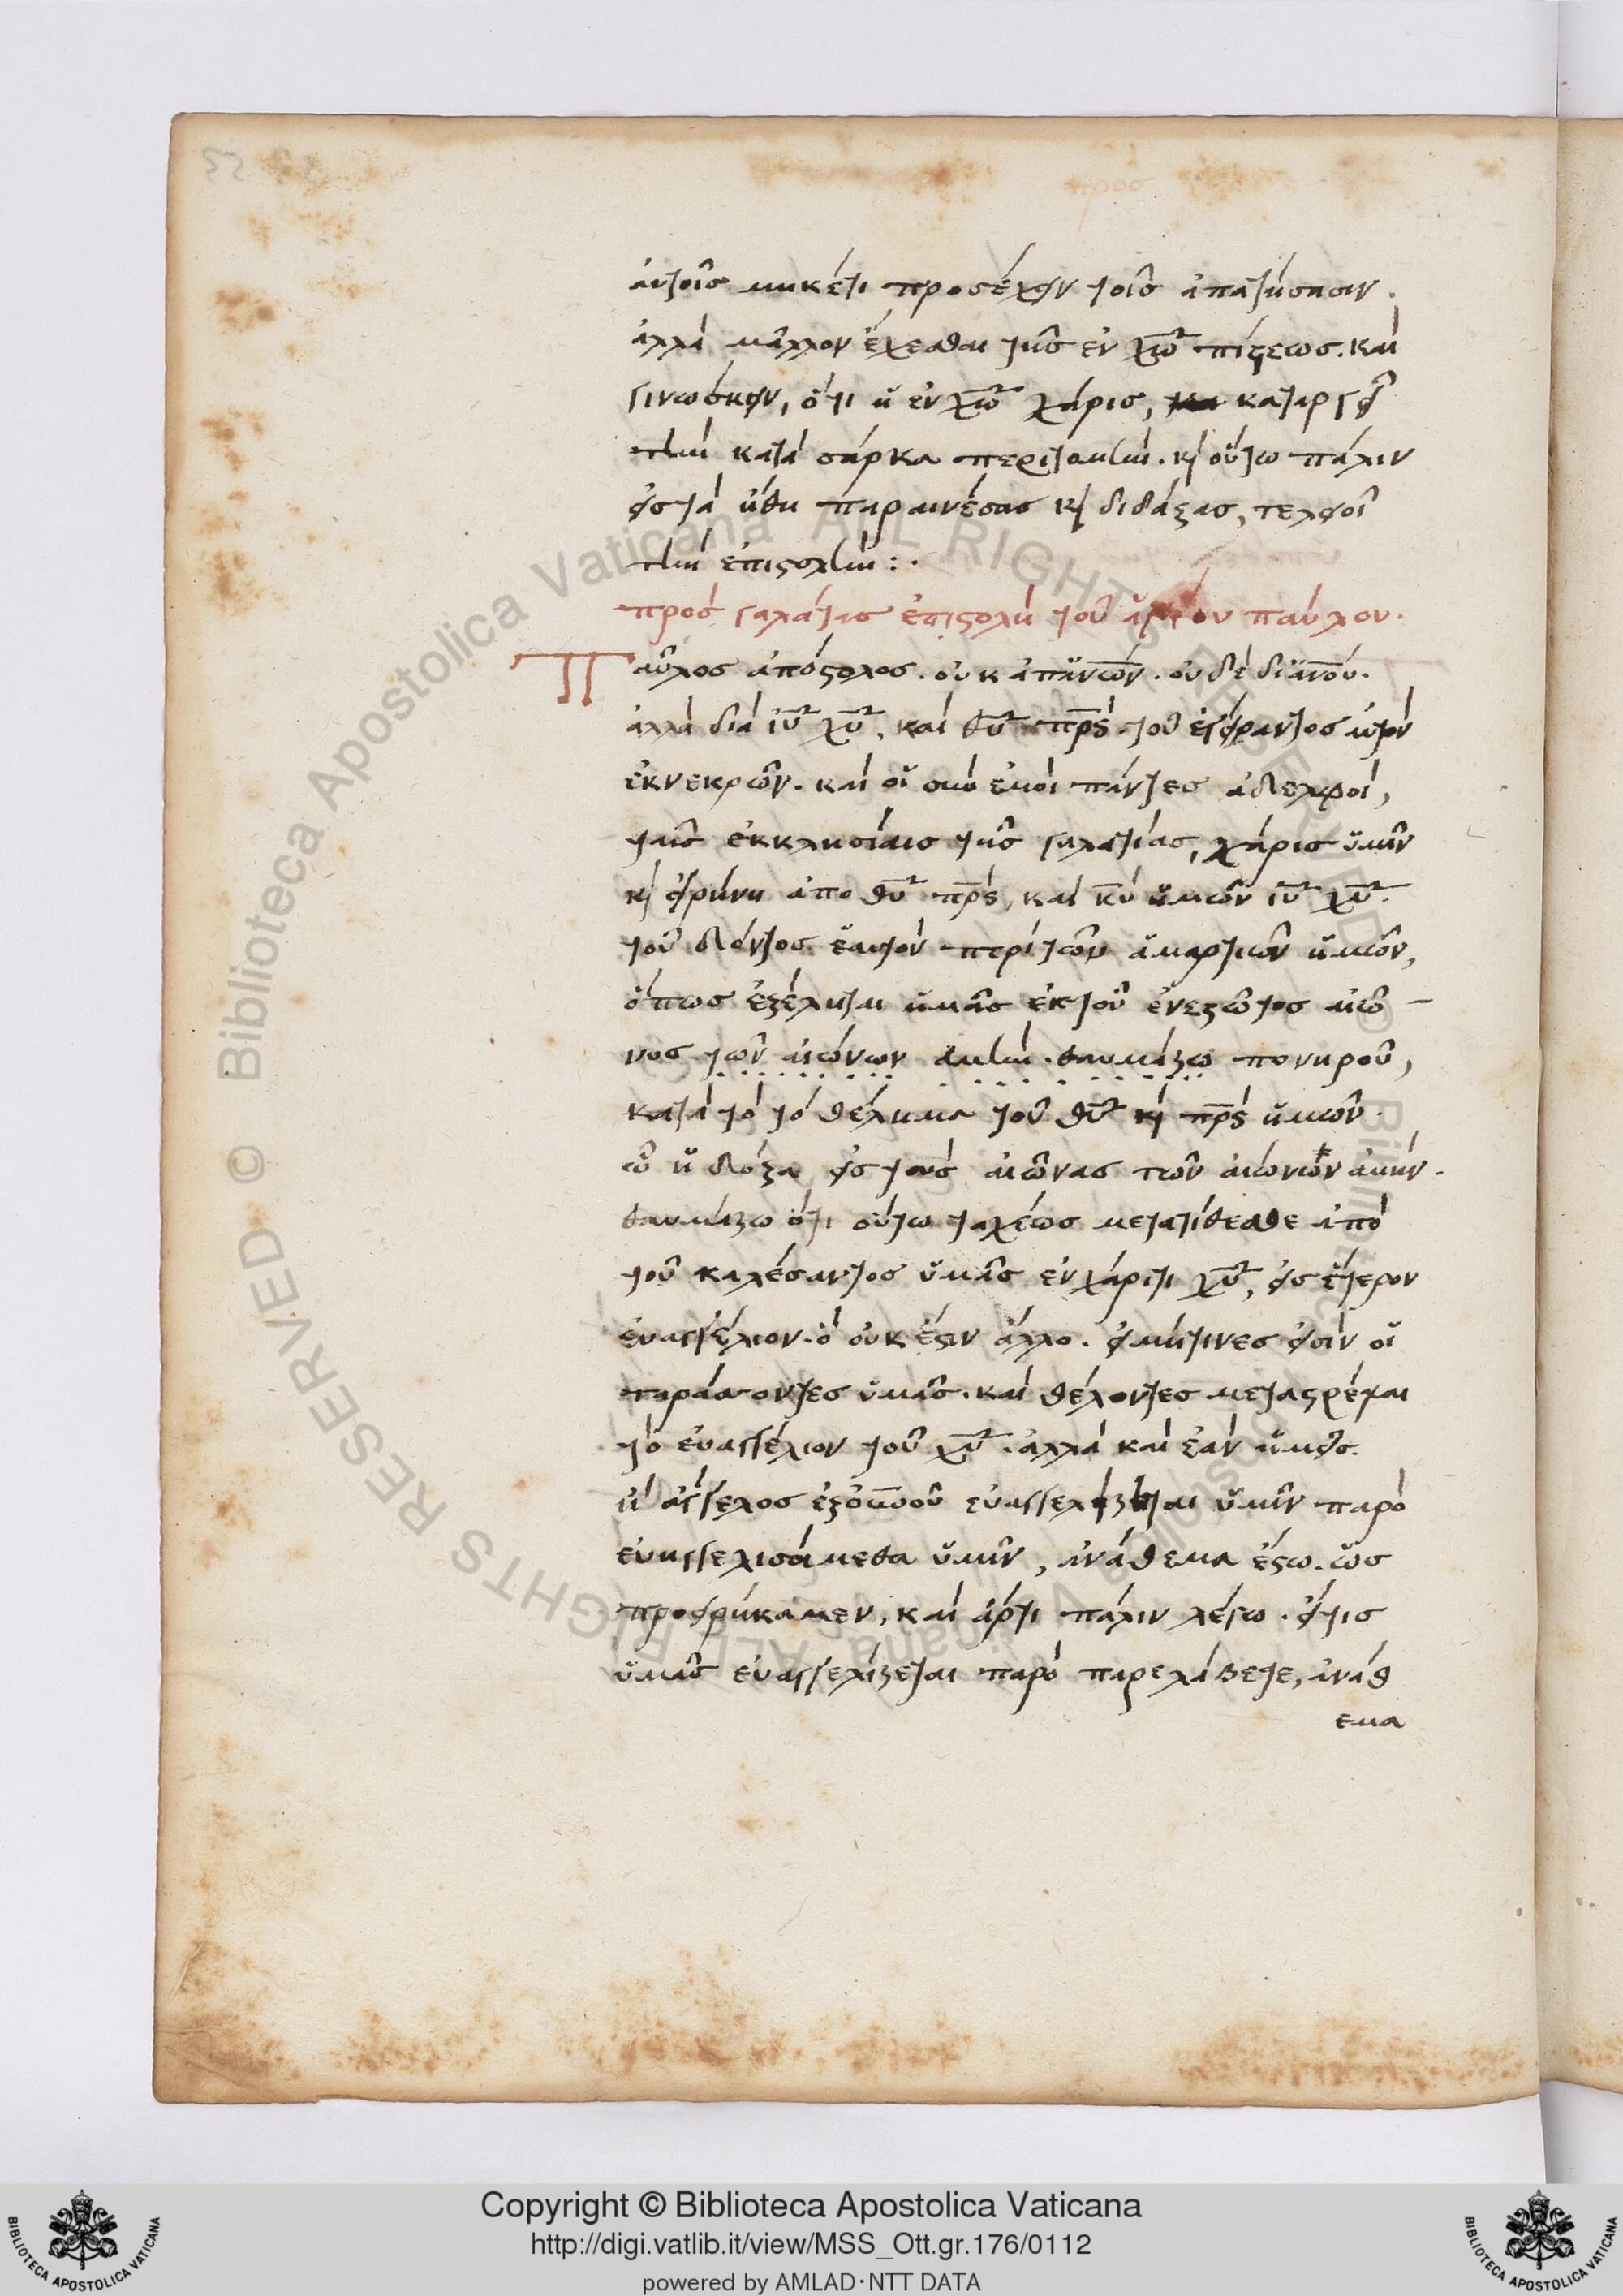 αὐτοῖς μηκέτι προσέχειν τοῖς ἀπατήσασιν.
ἀλλὰ μᾶλλον ἔχεσθαι τῆς ἐν χω πίστεως. καὶ
γινώσκειν, ὅτι ἡ ἐν χω χάρις, καταργεῖ
τὴν κατὰ σάρκα περιτομήν. κὶ οὕτω πάλιν
εἰς τὰ ἤθη παραινέσας κὶ διδάξας, τελειοῖ
τὴν ἐπιστολήν:·
πρὸς γαλάτας ἐπιστολὴ τοῦ ἁγίου παύλου.
Παῦλος ἀπόστολος. οὐκ ἀπ' ἀνων. οὐδὲ δι' ἀνου.
ἀλλὰ διὰ ιυ χυ, καὶ θυ πρς. τοῦ ἐγείραντος αὐτὸν
ἐκ νεκρῶν. καὶ οἱ σὺν ἐμοὶ πάντες ἀδελφοὶ,
ταῖς ἐκκλησίαις τῆς γαλατίας, χάρις ὑμῖν
κὶ εἰρήνη ἀπο θυ πρς, καὶ κυ ἡμῶν ιυ χυ.
τοῦ δόντος ἑαυτὸν περὶ τῶν ἁμαρτιῶν ἡμῶν,
ὅπως ἐξέληται ἡμᾶς ἐκ τοῦ ἐνεστῶτος αἰῶ-
νος τῶν αἰώνων ἀμήν. θαυμάζω πονηροῦ,
κατὰ τὸ τὸ θέλημα τοῦ θυ κὶ πρς ἡμῶν.
ὧ ἡ δόξα εἰς τοὺς αἰῶνας τῶν αἰώνων ἀμήν.
θαυμάζω ὅτι οὕτω ταχέως μετατίθεσθε ἀπὸ
τοῦ καλέσαντος ὑμᾶς ἐν χάριτι χυ, εἰς ἕτερον
εὐαγγέλιον. ὃ οὐκ ἔστιν ἄλλο. εἰ μή τινες εἰσὶν οἱ
ταράσσοντες ὑμᾶς. καὶ θέλοντες μεταστρέψαι
τὸ εὐαγγέλιον τοῦ χυ. ἀλλὰ καὶ ἐὰν ἡμεῖς.
ἢ ἄγγελος ἐξ ουνου εὐαγγελίζηται ὑμῖν παρὸ
εὐηγγελισάμεθα ὑμῖν, ἀνάθεμα ἔστω. ὡς
προειρήκαμεν, καὶ ἄρτι πάλιν λέγω. εἴ τις
ὑμᾶς εὐαγγελίζεται παρὸ παρελάβετε, ἀνάθ
εμα
Copyright © Biblioteca Apostolica Vaticana
http://digi.vatlib.it/view/MSS_Ott.gr.176/0112
powered by AMLAD·NTT DATA
BIBLIOTECA APOSTOLICA VATICANA
BIBLIOTECA APOSTOLICA VATICANA